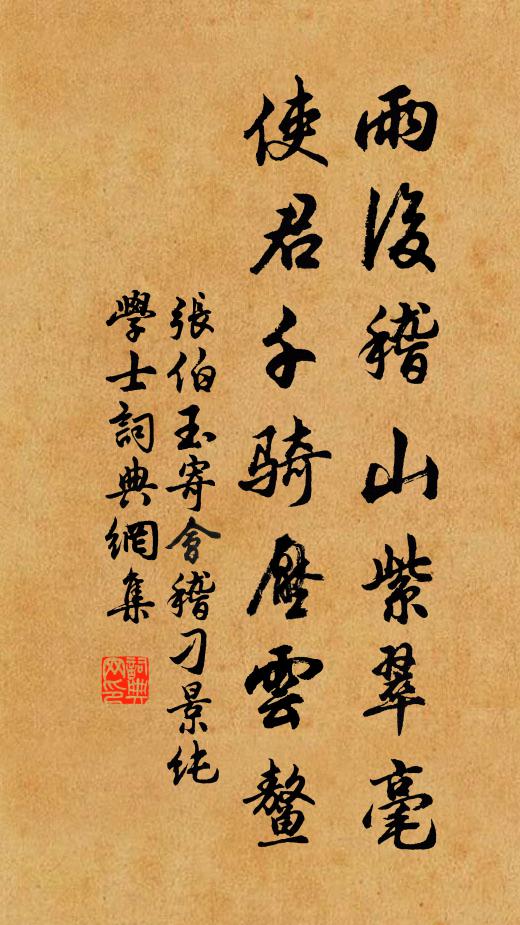 雨後稽山紫翠毫
使君千騎壓雲鰲
張伯玉寄會稽刁景純
學士詞典網集
詞典網印